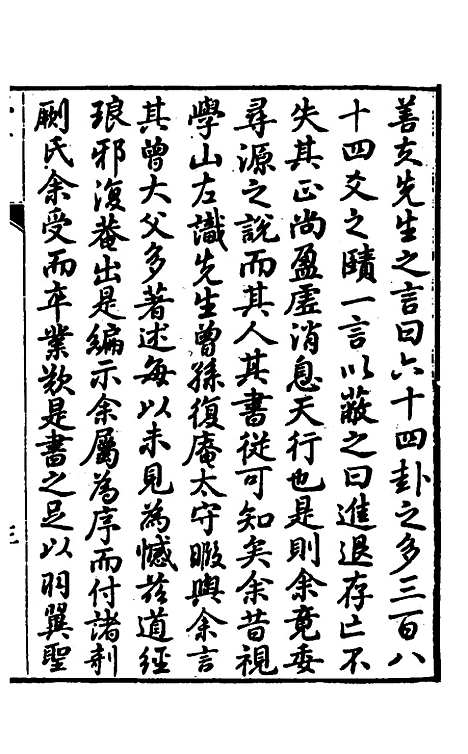 善哉先生之言曰六十四卦之多三百八
十四爻之賾一言以蔽之曰進退存亡不
失其正尚盈虛消息天行也是則余竟委
尋源之說而其人其書從可知矣余昔視
學山左識先生曾孫復庵太守暇輿余言
其曾大父多著述每以未見為憾茲道經
琅邪復菴出是編示余屬為序而付諸剞
劂氏余受而卒業歎是書之足以羽翼聖